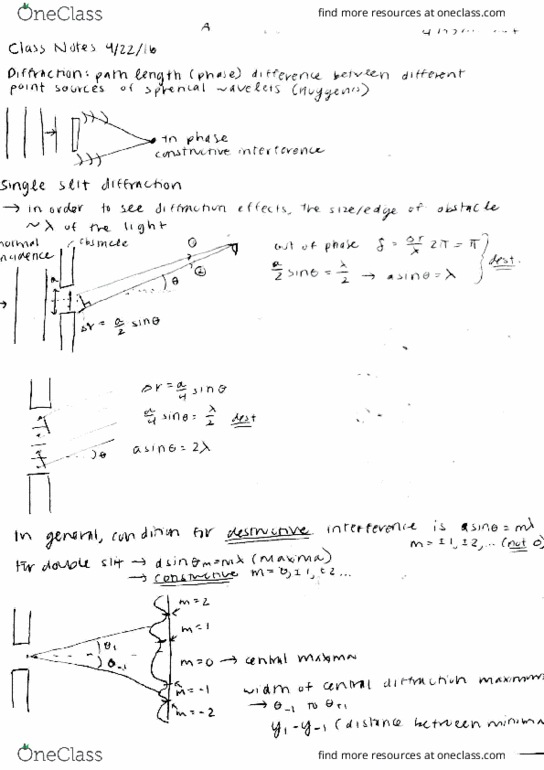 OneClass
find more resources at oneclass.com
A
Class Notes 4/22/16
Diffraction: path length (phase) difference between different
point sources of spherical wavelets (Huygens)
in phase
constructive interference
Single slit diffraction
→ in order to see diffraction effects, the size/edge of obstacle
~λ of the light
normal
incidence
obstacle
①
②
θ
a
Δr = a/2 sinθ
out of phase δ = Δr/λ 2π = π
a/2 sinθ = λ/2 → a sinθ = λ
dest.
Δr = a/4 sinθ
a/4 sinθ = λ/2 dest
θ
a sinθ = 2λ
In general, condition for destructive interference is a sinθ = mλ
m = ±1, ±2, ... (not 0)
For double slit → d sinθm = mλ (maxima)
→ constructive m = 0, ±1, ±2...
m = 2
m = 1
θ1
θ-1
m = 0 → central maxima
m = -1
m = -2
width of central diffraction maximum
→ θ-1 to θ+1
y1 - y-1 (distance between minima
OneClass
find more resources at oneclass.com